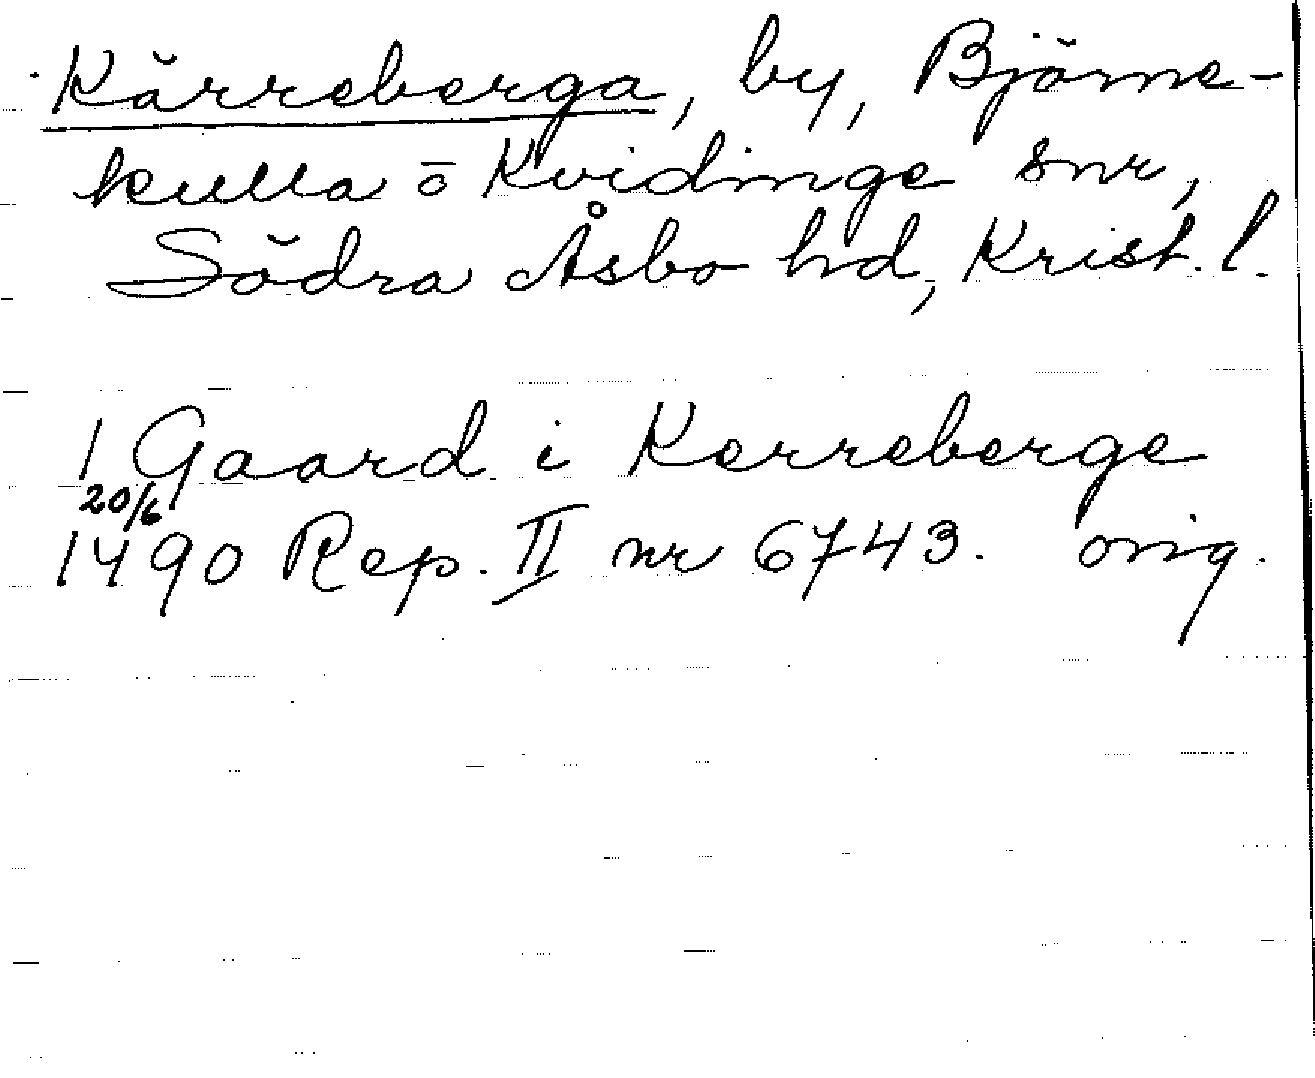 Kärreberga, by, Björne-
kulla ō Kvidinge snr,
Södra Åsbo hd, Krist. l.
1 Gaard i Kerreberge
20/6
1490 Rep. II nr 6743. orig.